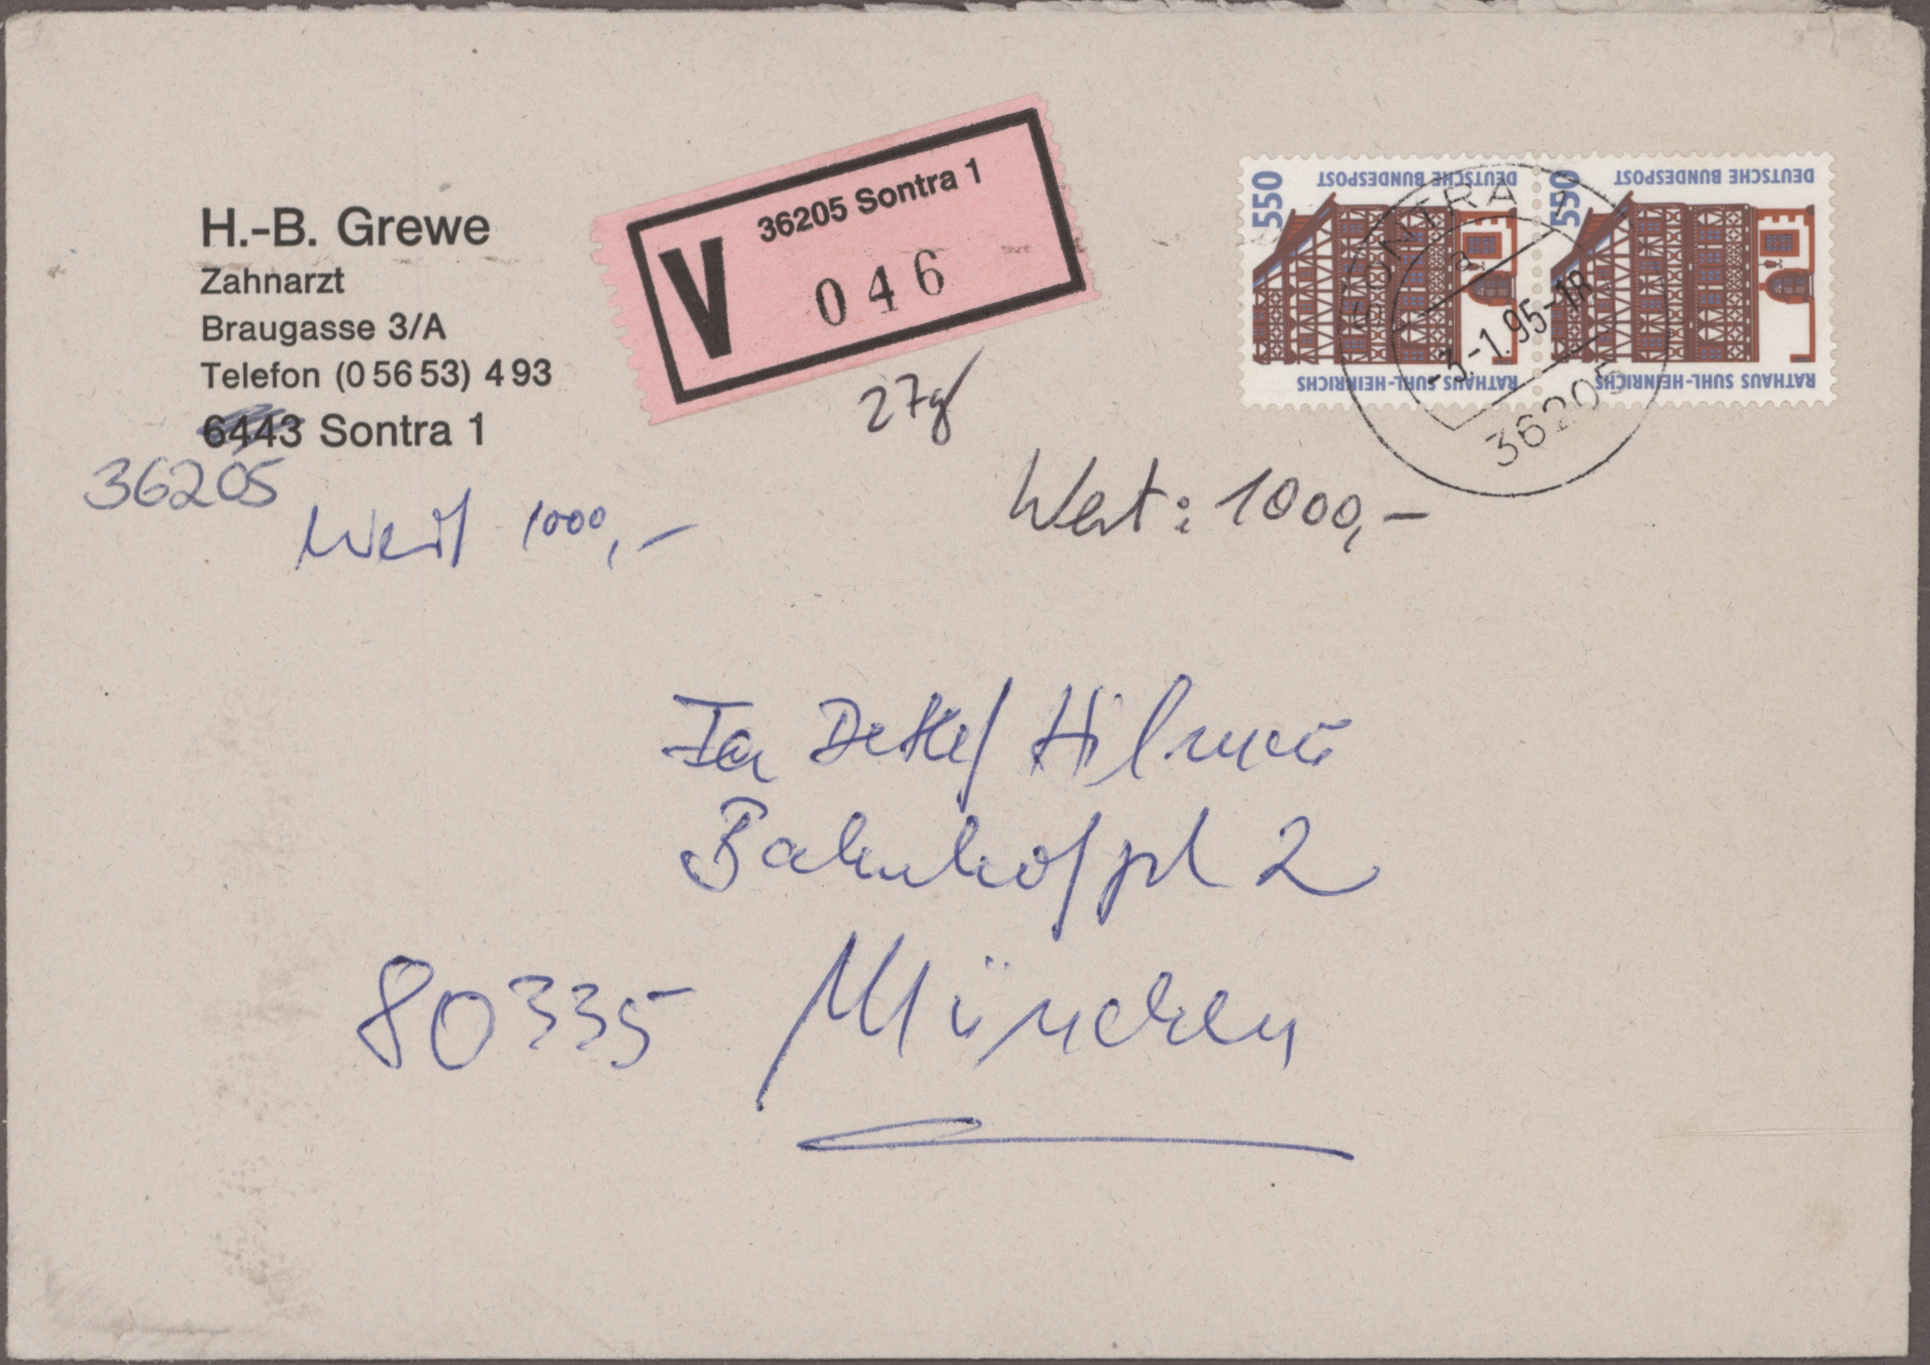 H.-B. Grewe
Zahnarzt
Braugasse 3/A
Telefon (0 56 53) 4 93
6443 Sontra 1
36205
Wert 1000,-
V
36205 Sontra 1
046
27g
Wert: 1000,-
550
DEUTSCHE BUNDESPOST
RATHAUS SUHL-HEINRICHS
550
DEUTSCHE BUNDESPOST
RATHAUS SUHL-HEINRICHS
SONTRA 1
a
-3.-1.95-18
36205
Fa Detlef
Bahnhofpl 2
80335 München